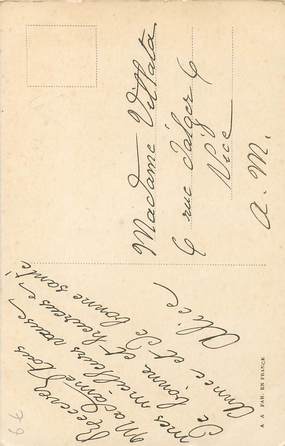 Madame Villata
6 rue d'Alger 6
Nice
A. M.
Recevez tous
Madame
mes meilleurs vœux
de bonne et heureuse
Année et de bonne santé
Alice
A A PAR. EN FRANCE